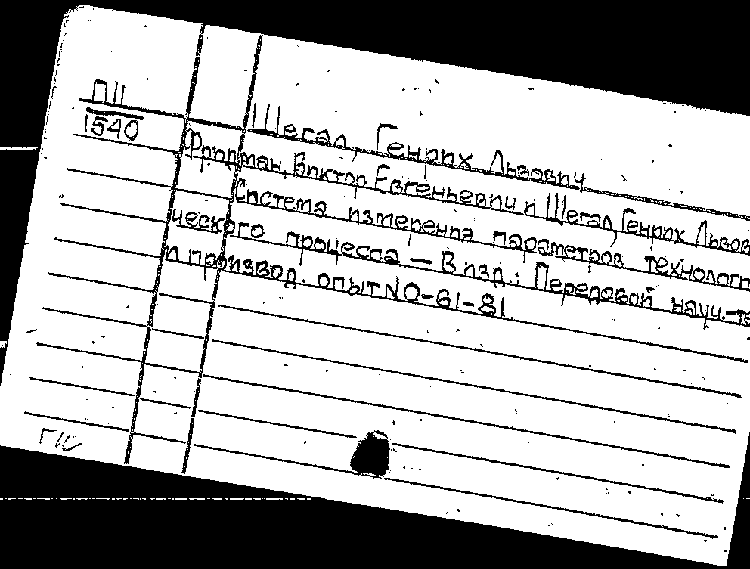 ПЦ
1540
Шегал, Генрих Львович
Фридман, Виктор Евгеньевич и Шегал, Генрих Львов
Система измерения параметров технологи
ческого процесса — В изд.: Передовой науч.-те
и производ. опыт NO-61-81.